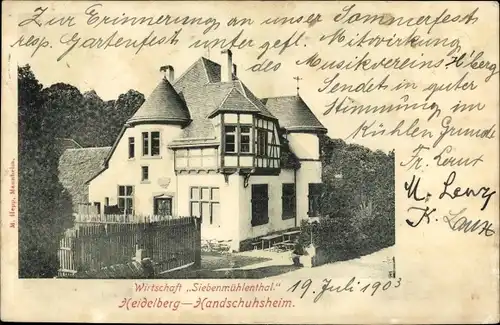 Zur Erinnerung an unser Sommerfest
resp. Gartenfest unter gefl. Mitwirkung
des Musikvereins H'berg
Sendets in guter
Stimmung im
Kühlen Grunde
Fr. Lenz
M. Lenz
K. Lenz
M. Hepp, Mannheim.
Wirtschaft „Siebenmühlenthal."
Heidelberg—Handschuhsheim.
19. Juli 1903